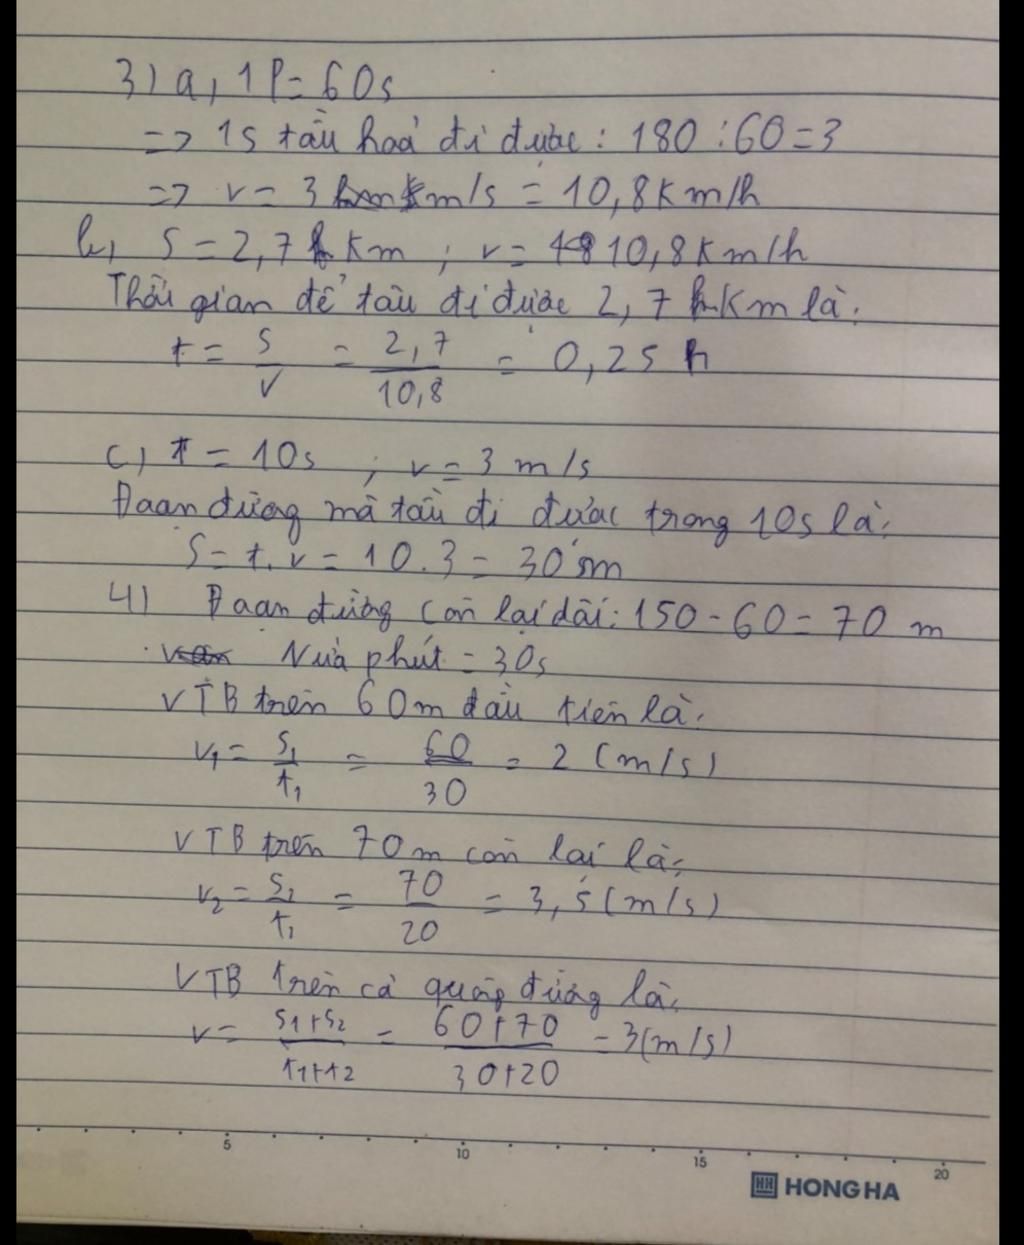 3) a, 1P = 60s
=> 1s tàu hoả đi được : 180 : 60 = 3
=> v = 3 km/s = 10,8 Km/h
b, S = 2,7 Km ; v = 10,8 Km/h
Thời gian để tàu đi được 2,7 Km là:
t = S/v = 2,7/10,8 = 0,25 h
c) t = 10s ; v = 3 m/s
Đoạn đường mà tàu đi được trong 10s là:
S = t. v = 10 . 3 = 30 m
4) Đoạn đường còn lại dài: 150 - 60 = 70 m
Nửa phút = 30s
VTB trên 60m đầu tiên là:
v1 = S1/t1 = 60/30 = 2 (m/s)
VTB trên 70m còn lại là:
v2 = S2/t2 = 70/20 = 3,5 (m/s)
VTB trên cả quãng đường là:
v = S1+S2/t1+t2 = 60+70/30+20 = 3 (m/s)
5 10 15 20
HH HONG HA